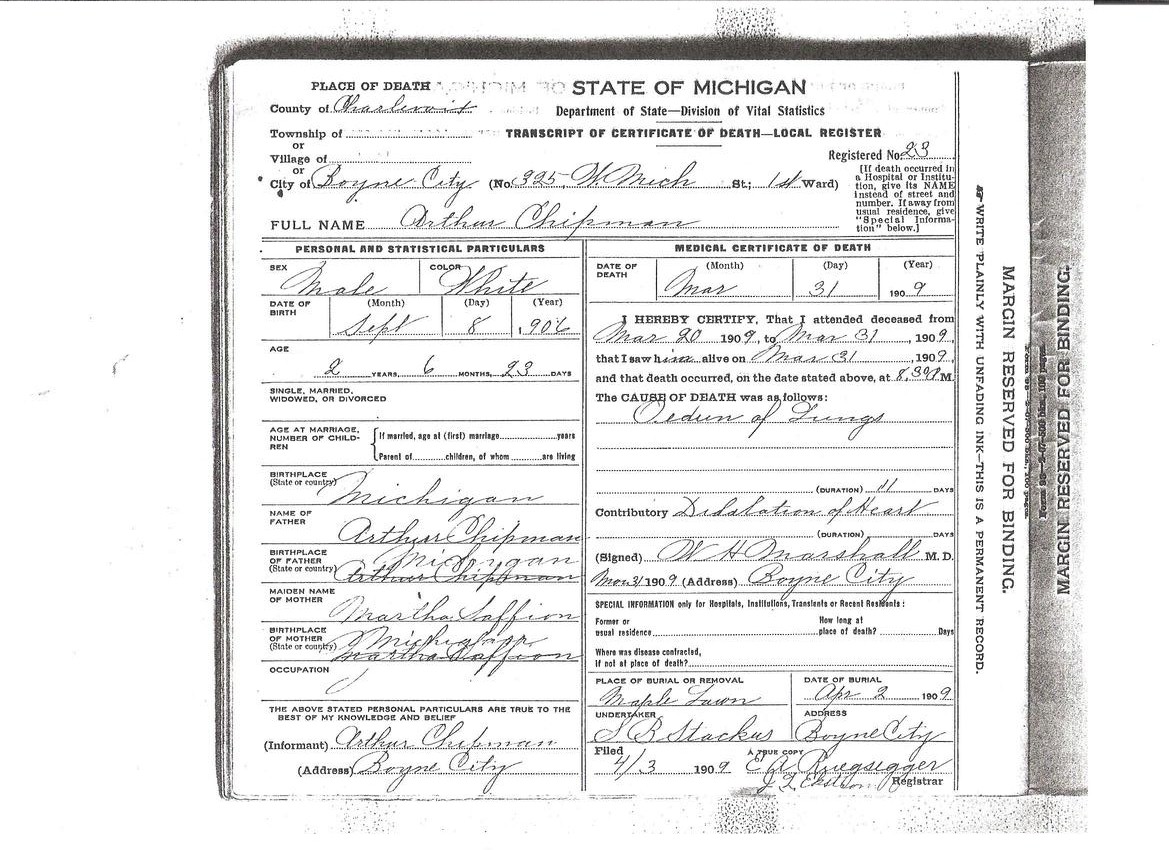 PLACE OF DEATH
STATE OF MICHIGAN
County of Charlevoix
Department of State—Division of Vital Statistics
Township of
TRANSCRIPT OF CERTIFICATE OF DEATH—LOCAL REGISTER
or
Village of
Registered No. 23
or
City of Boyne City (No. 325, W Mich St.; 1st Ward)
[If death occurred in
a Hospital or Institu-
tion, give its NAME
instead of street and
number. If away from
usual residence, give
"Special Informa-
tion" below.]
FULL NAME Arthur Chipman
PERSONAL AND STATISTICAL PARTICULARS
SEX Male
COLOR White
DATE OF BIRTH
(Month) (Day) (Year)
Sept 8, 1906
AGE
2 YEARS, 6 MONTHS, 23 DAYS
SINGLE, MARRIED,
WIDOWED, OR DIVORCED
AGE AT MARRIAGE,
NUMBER OF CHILD-
REN
If married, age at (first) marriage years
Parent of children, of whom are living
BIRTHPLACE
(State or country) Michigan
NAME OF
FATHER Arthur Chipman
BIRTHPLACE
OF FATHER
(State or country) Michigan
Arthur Chipman
MAIDEN NAME
OF MOTHER Martha Saffion
BIRTHPLACE
OF MOTHER
(State or country) Michigan
Martha Saffion
OCCUPATION
THE ABOVE STATED PERSONAL PARTICULARS ARE TRUE TO THE
BEST OF MY KNOWLEDGE AND BELIEF
(Informant) Arthur Chipman
(Address) Boyne City
MEDICAL CERTIFICATE OF DEATH
DATE OF
DEATH
(Month) (Day) (Year)
Mar 31 1909
I HEREBY CERTIFY, That I attended deceased from
Mar 20 1909, to Mar 31, 1909,
that I saw him alive on Mar 31, 1909,
and that death occurred, on the date stated above, at 8.30 P M.
The CAUSE OF DEATH was as follows:
Oedem of Lungs
(DURATION) 11 DAYS
Contributory Dilalation of Heart
(DURATION) DAYS
(Signed) W H Marshall M. D.
Mar 31 1909 (Address) Boyne City
SPECIAL INFORMATION only for Hospitals, Institutions, Transients or Recent Residents:
Former or
usual residence
How long at
place of death? Days
Where was disease contracted,
If not at place of death?
PLACE OF BURIAL OR REMOVAL
Maple Lawn
DATE OF BURIAL
Apr 2 1909
UNDERTAKER
S B Stackus
ADDRESS
Boyne City
Filed
4/3 1909
A TRUE COPY
E A Ruegsegger
Registrar
WRITE PLAINLY WITH UNFADING INK—THIS IS A PERMANENT RECORD.
MARGIN RESERVED FOR BINDING.
MARGIN RESERVED FOR BINDING.